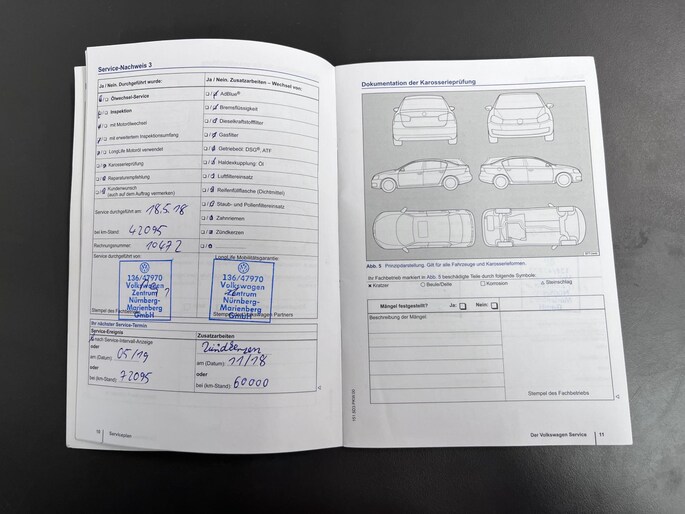 Service-Nachweis 3
Ja / Nein. Durchgeführt wurde:
Ölwechsel-Service
Inspektion
mit Motorölwechsel
mit erweitertem Inspektionsumfang
LongLife Motoröl verwendet
Karosserieprüfung
Reparaturempfehlung
Kundenwunsch
(auch auf dem Auftrag vermerken)
Service durchgeführt am: 18.5.18
bei km-Stand: 42095
Rechnungsnummer: 10472
Service durchgeführt von:
136/47970
Volkswagen
Zentrum
Nürnberg-
Marienberg
GmbH
Stempel des Fachbetriebs
Ja / Nein. Zusatzarbeiten – Wechsel von:
AdBlue®
Bremsflüssigkeit
Dieselkraftstofffilter
Gasfilter
Getriebeöl: DSG®, ATF
Haldexkupplung: Öl
Luftfiltereinsatz
Reifenfüllflasche (Dichtmittel)
Staub- und Pollenfiltereinsatz
Zahnriemen
Zündkerzen
LongLife Mobilitätsgarantie:
136/47970
Volkswagen
Zentrum
Nürnberg-
Marienberg
GmbH
Stempel des Volkswagen Partners
Ihr nächster Service-Termin
Service-Ereignis
nach Service-Intervall-Anzeige
oder
am (Datum): 05/19
oder
bei (km-Stand): 72095
Zusatzarbeiten
Zündkerzen
am (Datum): 11/18
oder
bei (km-Stand): 60000
10
Serviceplan
Dokumentation der Karosserieprüfung
Abb. 5 Prinzipdarstellung. Gilt für alle Fahrzeuge und Karosserieformen.
Ihr Fachbetrieb markiert in Abb. 5 beschädigte Teile durch folgende Symbole:
Kratzer Beule/Delle Korrosion Steinschlag
Mängel festgestellt? Ja: Nein:
Beschreibung der Mängel:
Stempel des Fachbetriebs
Der Volkswagen Service 11